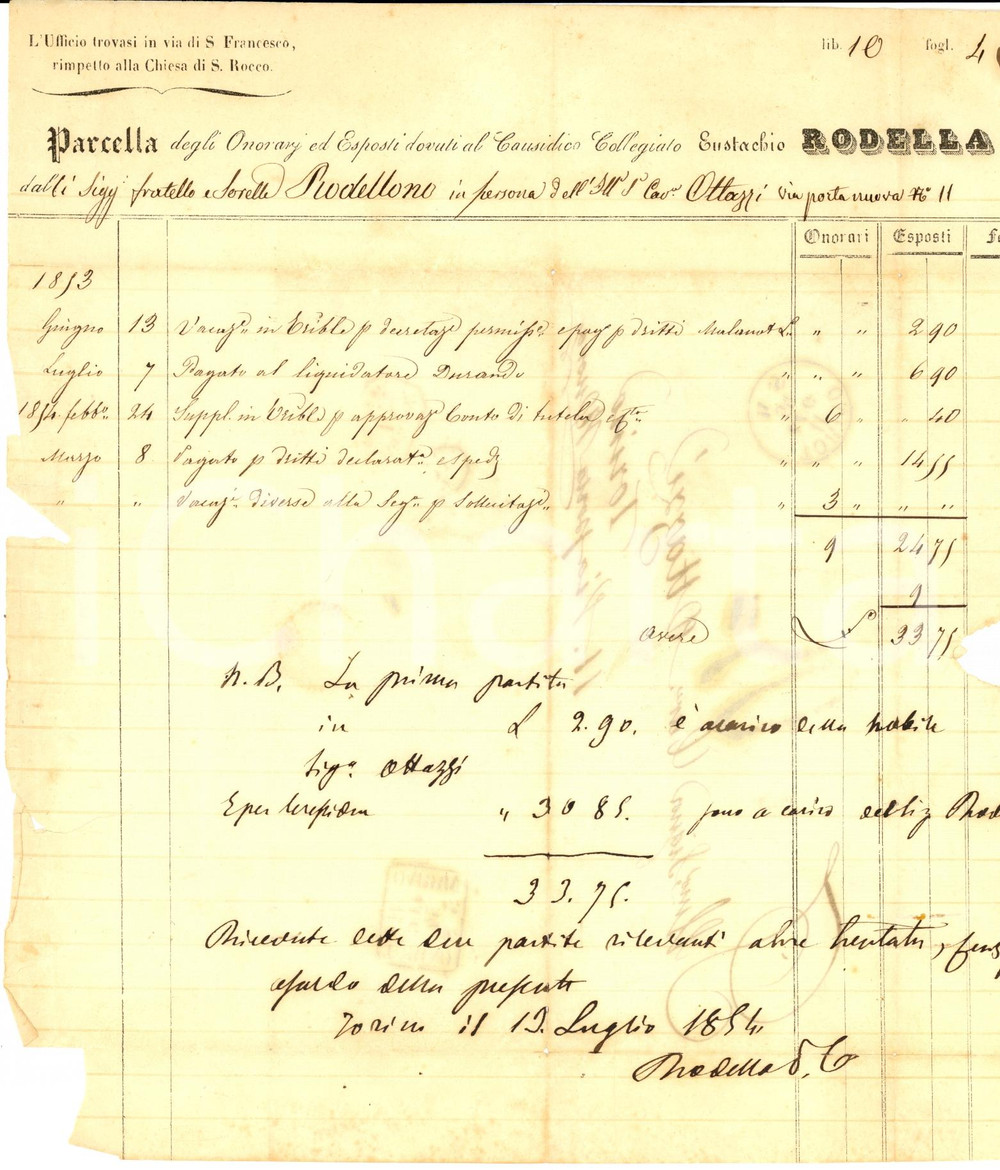 L'Ufficio trovasi in via di S Francesco,
rimpetto alla Chiesa di S. Rocco.
lib. 10 fogl. 4
Parcella degli Onorarj ed Esposti dovuti al Causidico Collegiato Eustachio RODELLA
dalli Sigg fratello e Sorelle Rodellono in persona dell' Ill S Cav. Ottazzi via porta nuova N° 11
Onorari Esposti
1853
Giugno 13 in Trible p permiss. e pag p dritti Malanot L. " " 2 90
Luglio 7 Pagato al liquidatore Durando " " " 6 90
1854 febb. 24 Suppl. in Trible p approvaz Conto di tutela " 6 " " 40
Marzo 8 Pagato p dritti declarat. e sped " " " 14 55
" " Vacaz. diverse alla Seg. p Sollicitaz. " 3 " " "
9 24 75
9
avere 33 75
N. B. La prima partita
in L 2.90. è a carico della Nobile
Sig. Ottazzi
E per " 30 85. sono a carico
33. 75.
Ricevute dette due partite rilevanti
della presente
Torino il 13. Luglio 1854
Rodella